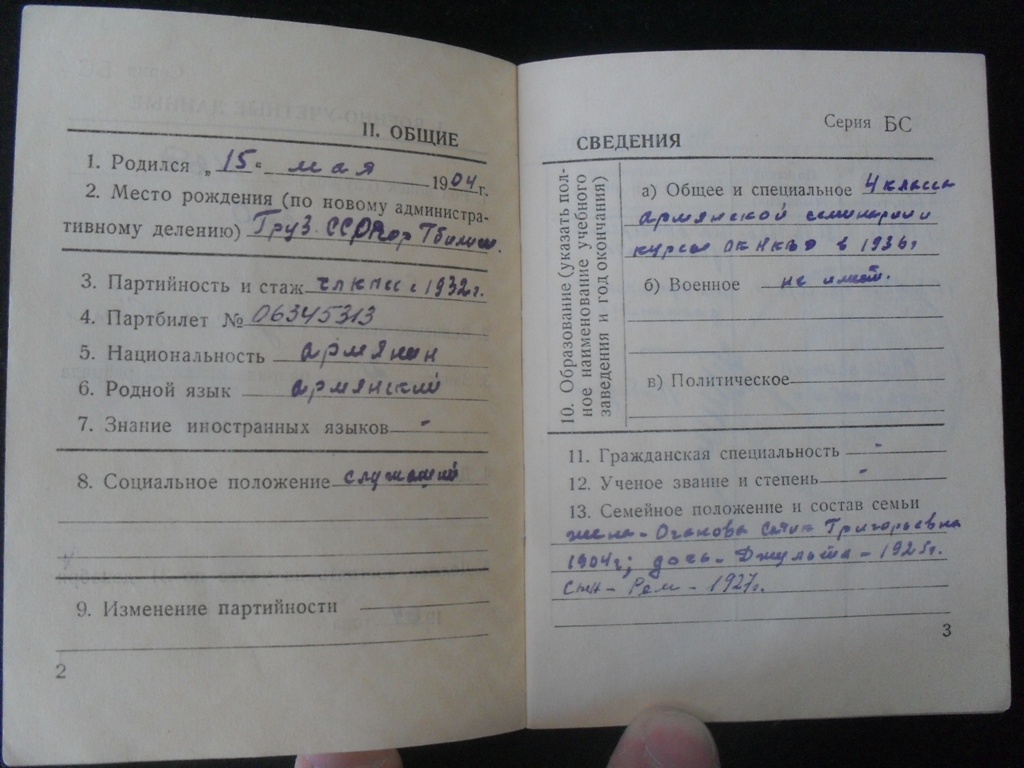 II. ОБЩИЕ
1. Родился „15“ мая 1904 г.
2. Место рождения (по новому административ-
тивному делению) Груз. ССР гор Тбилиси.
3. Партийность и стаж чл КПСС с 1932 г.
4. Партбилет № 06345313
5. Национальность армянин
6. Родной язык армянский
7. Знание иностранных языков -
8. Социальное положение служащий
9. Изменение партийности
2
Серия БС
СВЕДЕНИЯ
10. Образование (указать пол-
ное наименование учебного
заведения и год окончания)
а) Общее и специальное 4 класса
армянской семинарии и
курсы ОК НКВД в 1936 г
б) Военное не имеет.
в) Политическое
11. Гражданская специальность -
12. Ученое звание и степень -
13. Семейное положение и состав семьи
жена - Оганова Григорьевна
1904 г; дочь - Джульета - 1925 г.
Сын - Рем - 1927 г.
3